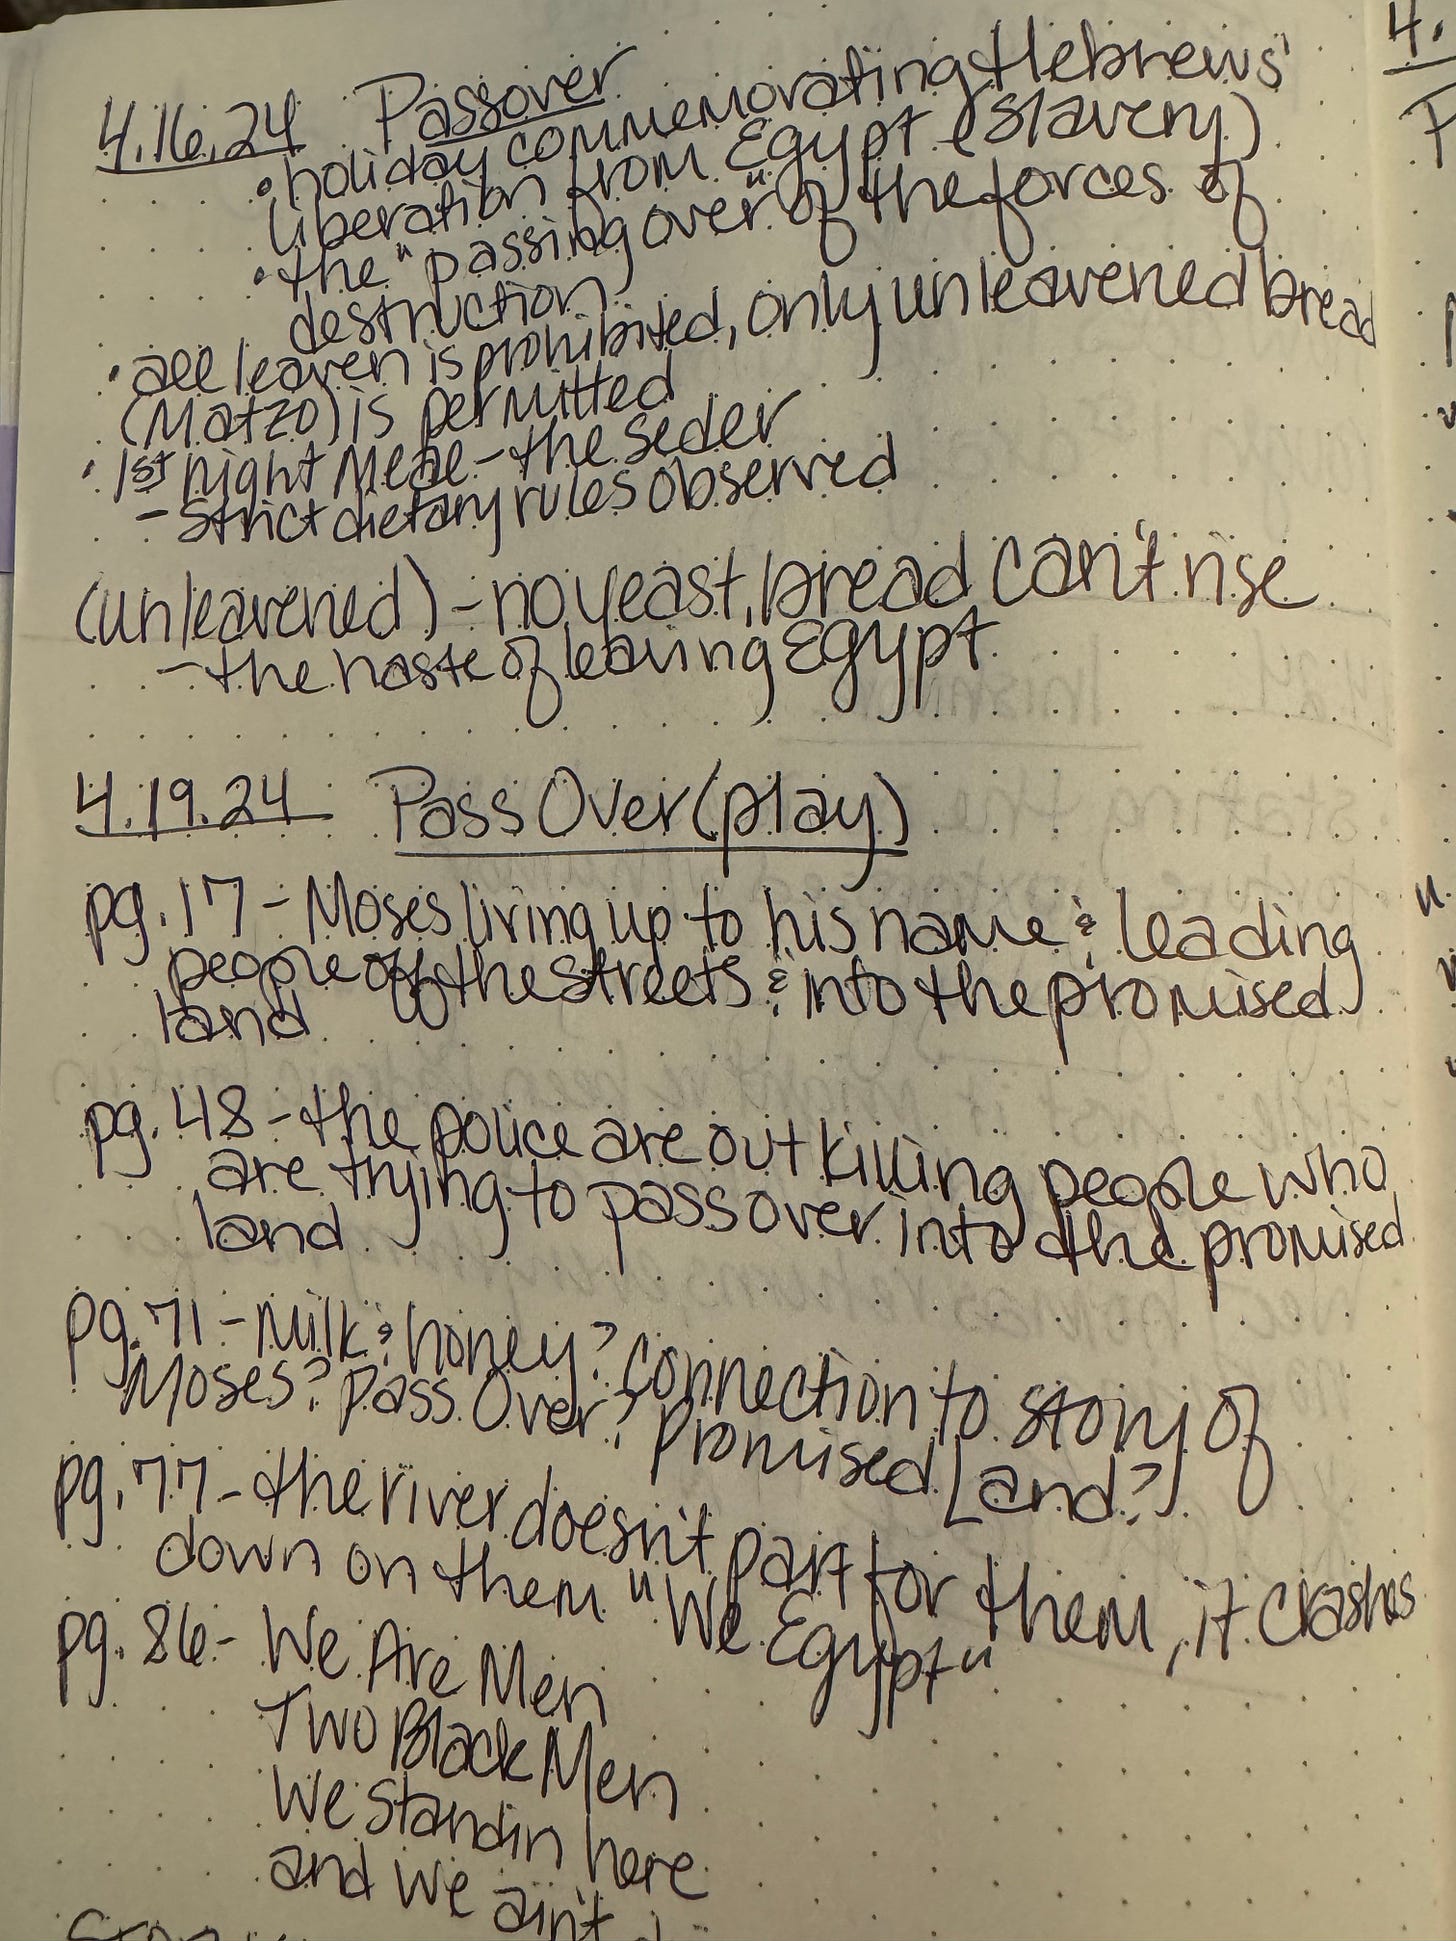 4.16.24 Passover
• holiday commemorating Hebrews'
liberation from Egypt (slavery)
• the "passing over" of the forces of
destruction
• all leaven is prohibited, only unleavened bread
(Matzo) is permitted
• 1st night meal - the seder
- strict dietary rules observed
(unleavened) - no yeast, bread can't rise
- the haste of leaving Egypt
4.19.24 Pass Over (play)
pg. 17 - Moses living up to his name & leading
people off the streets & into the promised
land
pg. 48 - the police are out killing people who
are trying to pass over into the promised
land
pg. 71 - milk & honey? connection to story of
Moses? Pass Over? Promised Land?
pg. 77 - the river doesn't part for them, it crashes
down on them "We Egypt"
pg. 86 - We Are Men
Two Black Men
We standin here
and we ain't
4.